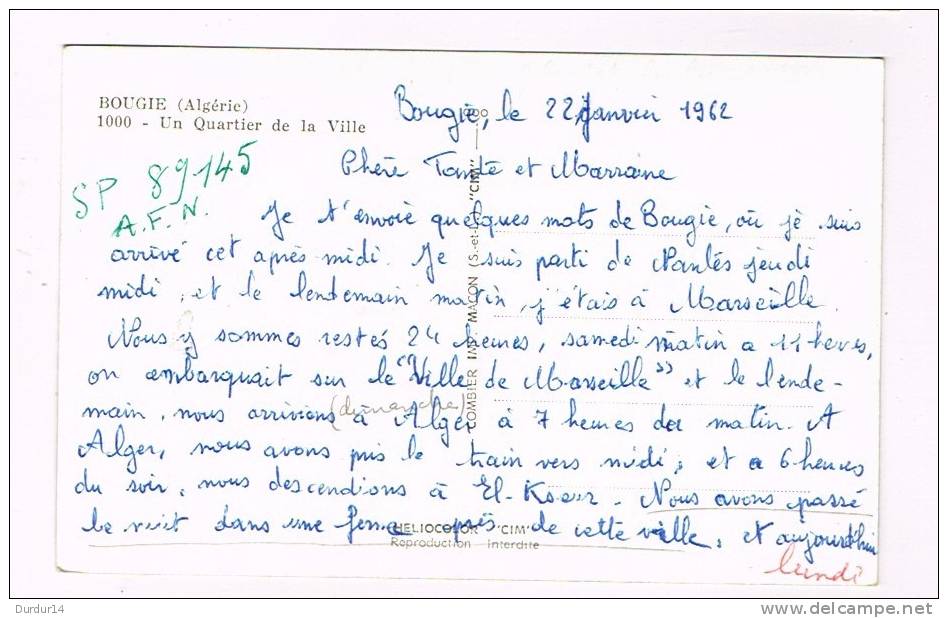 BOUGIE (Algérie)
1000 - Un Quartier de la Ville
Bougie, le 22 Janvier 1962
SP 89145
A.F.N.
Chère Tante et Marraine
Je t'envoie quelques mots de Bougie, où je suis
arrivé cet après midi. Je suis parti de Nantes jeudi
midi, et le lendemain matin, j'étais à Marseille.
Nous y sommes restés 24 heures, samedi matin a 11 heures,
on embarquait sur le "Ville de Marseille" et le lende-
main, nous arrivions à Alger à 7 heures du matin. A
(dimanche)
Alger, nous avons pris le train vers midi, et a 6 heures
du soir, nous descendions à El-Kseur. Nous avons passé
la nuit dans une ferme près de cette ville, et aujourd'hui
lundi
COMBIER IMP. MACON (S.-et-L.) "CIM"
HELIOCOLOR "CIM"
Reproduction Interdite
Durdur14
www.delcampe.net